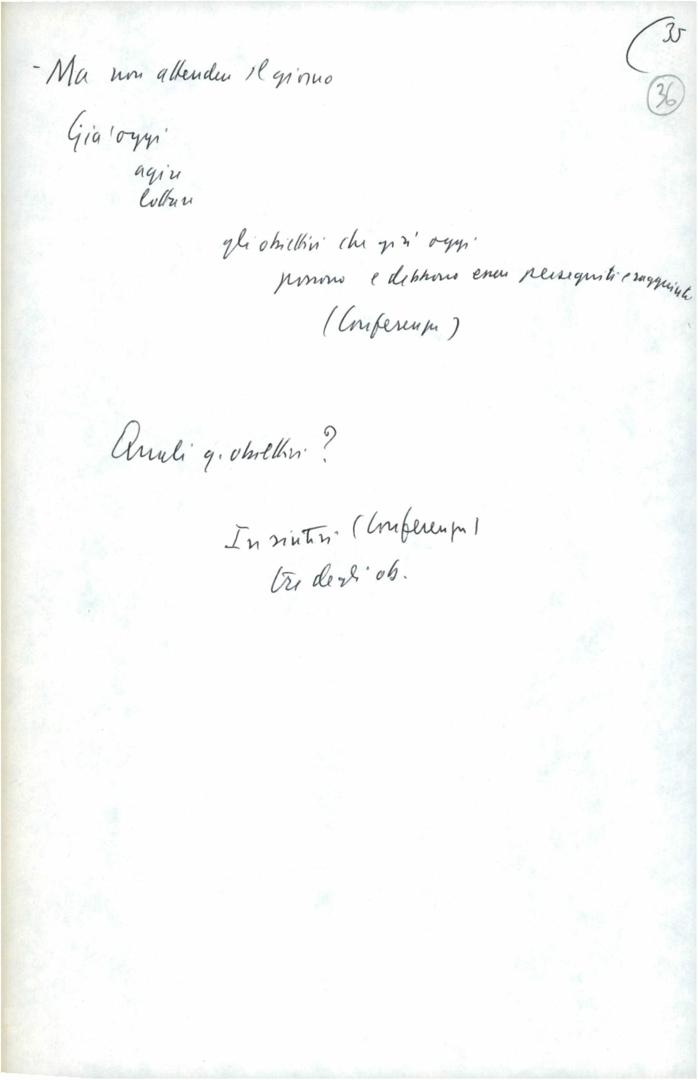 35
36
- Ma non attendere il giorno
Già oggi
agire
lottare
gli obiettivi che già oggi
possono e debbono essere perseguiti e raggiunti
(Conferenza)
Quali q. obiettivi?
In sintesi (Conferenza)
tre degli ob.